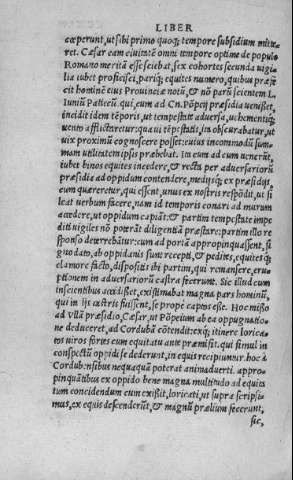 LIBER
cœperunt, ut sibi primo quoq; tempore subsidium mitte
ret. Cæsar eam ciuitatē omni tempore optime de populo
Romano meritā esse sciebat, sex cohortes secunda uigi
lia iubet proficisci, pariq; equites numero, quibus præfe
cit hominē eius Prouinciæ notū, & nō parū scientem L.
Iuniū Paticcū. qui, cum ad Cn. Pōpeij præsidia uenisset,
incidit idem tēporis, ut tempestate aduersa, uehementiq;
uento afflictaretur: quæ ui tēpestatis, ita obscurabatur, ut
uix proximū cognoscere posset: cuius incommodū sum-
mam utilitatem ipsis præbebat. Ita eum ad eum uenerūt,
iubet binos equites insedere, & recta per aduersariorū
præsidia ad oppidum contendere, medijsq; ex præsidijs,
cum quæreretur, qui essent, unus ex nostris respōdit, ut si
leat uerbum facere, nam id temporis conari ad murum
accedere, ut oppidum capiāt: & partim tempestate impe
diti uigiles nō poterāt diligentiā præstare: partim illo re
sponso deterrebātur: cum ad portā appropinquassent, si
gno dato, ab oppidanis sunt recepti, & pedites, equitesq;
clamore facto, dispositis ibi partim, qui remansere, eru
ptionem in aduersariorū castra fecerunt. Sic illud cum
inscientibus accidisset, existimabat magna pars hominū,
qui in ijs castris fuissent, se propè captos esse. Hoc misso
ad Vllā præsidio, Cæsar, ut Pōpeium ab ea oppugnatio-
ne deduceret, ad Cordubā cōtendit: exq; itinere lorica-
tos uiros fortes cum equitatu ante præmisit. qui simul in
conspectū oppidi se dederunt, in equis recipiuntur. hoc à
Cordubensibus nequaquā poterat animaduerti. appro-
pinquātibus ex oppido bene magna multitudo ad equita
tum concidendum cum exisset, loricati, ut supra scripsi-
mus, ex equis descenderūt, & magnū prælium fecerunt,
sic,